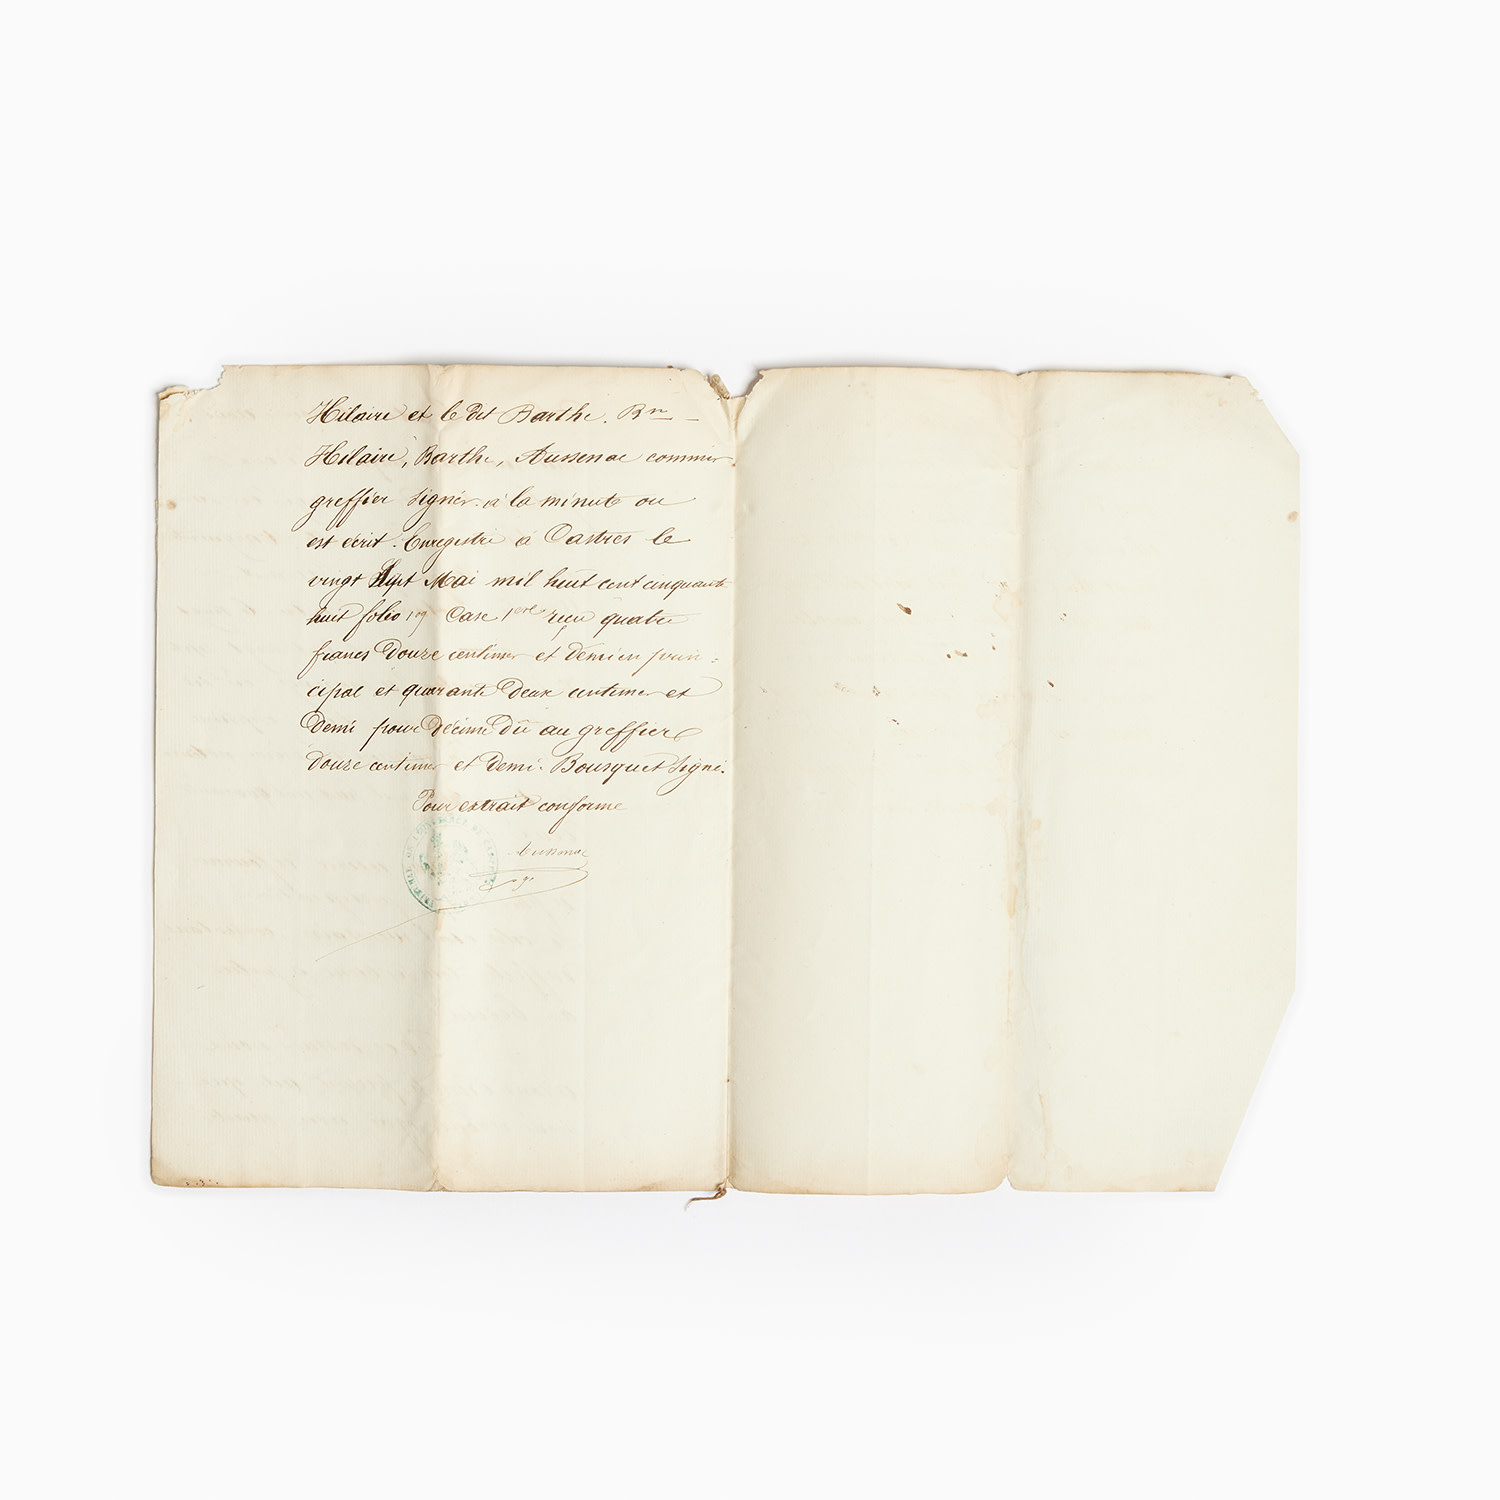 Hilaire et le dit Barthe. Bn
Hilaire, Barthe, Aussenac commis
greffier signés à la minute ou
est écrit. Enregistré à Castres le
vingt sept Mai mil huit cent cinquante
huit folio 119 Case 1ere reçu quatre
francs douze centimes et demi en prin:
cipal et quarante deux centimes et
demi pour décime dû au greffier
douze centimes et demi. Bousquet signé.
Pour extrait conforme
Aussenac